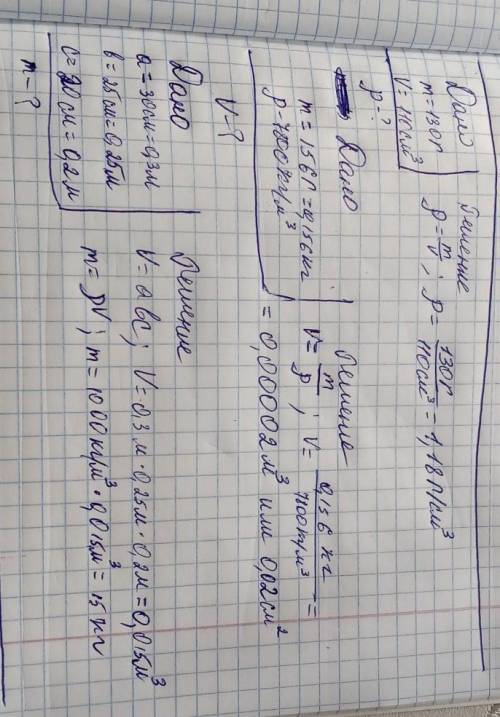 Дано
m=130г
V=110см³
ρ-?
Решение
ρ= m/V ; ρ= 130г/110см³ = 1,18г/см³
Дано
m=156г=0,156кг
ρ=7800кг/м³
V-?
Решение
V= m/ρ ; V= 0,156кг/7800кг/м³ =
=0,00002м³ или 0,02см²
Дано
a=30см=0,3м
b=25см=0,25м
c=20см=0,2м
m-?
Решение
V=abc; V=0,3м·0,25м·0,2м=0,015м³
m=ρV; m=1000кг/м³·0,015м³=15кг